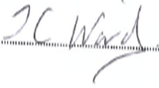 J C Ward